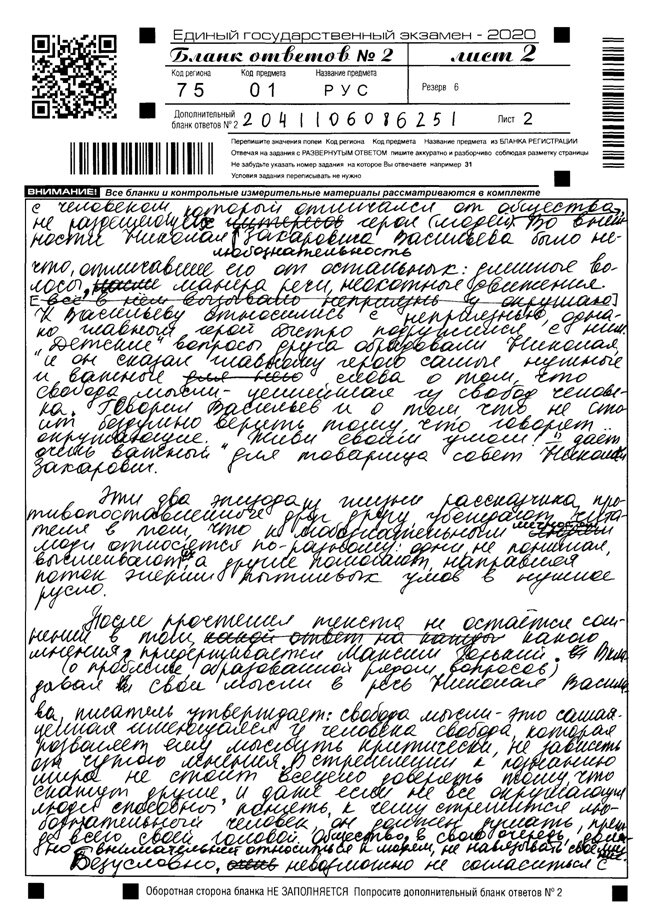 Единый государственный экзамен - 2020
Бланк ответов № 2 лист 2
Код региона Код предмета Название предмета
75 01 РУС Резерв 6
Дополнительный
бланк ответов № 2 2041106086251 Лист 2
Перепишите значения полей Код региона Код предмета Название предмета из БЛАНКА РЕГИСТРАЦИИ
Отвечая на задания с РАЗВЕРНУТЫМ ОТВЕТОМ пишите аккуратно и разборчиво соблюдая разметку страницы
Не забудьте указать номер задания на которое Вы отвечаете например 31
Условия задания переписывать не нужно
ВНИМАНИЕ! Все бланки и контрольные измерительные материалы рассматриваются в комплекте
с человеком, который отличался от общества,
не разделяющего интересов герои (людей). Во внеш
ности Николая Захаровича Васильева было не-
любознательность
что, отличавшее его от остальных: длинные во-
лосы, манера речи, неохотные движения.
[все в нем вызывало неприязнь у окружаю]
К Васильеву относились с неприязнью, одна-
ко главный герой быстро подружился с ним.
"Детские" вопросы друга обрадовали Николая
и он сказал главному герою самые нужные
и важные для него слова о том, что
свобода мысли - ценнейшая из свобод челове-
ка. Говорил Васильев и о том, что не сто
ит бездумно верить тому, что говорят
окружающие. "Живи своим умом!" дает
очень важный для товарища совет Николай
Захарович.
Эти два эпизода из жизни рассказчика, про-
тивопоставленные друг другу, убеждают чита-
теля в том, что к любознательным личностям
люди относятся по-разному: одни, не понимая,
высмеивают, а другие помогают, направляя
поток энергии пытливых умов в нужное
русло.
После прочтения текста не остаётся сом-
нений в том, какой ответ на какого
мнения придерживается Максим Горький. Вкла-
(о проблеме, образованной рядом вопросов)
дывая свои мысли в речь Николая Василь
ва, писатель утверждает: свобода мысли - это самая
ценная имеющаяся у человека свобода, которая
позволяет ему мыслить критически, не зависеть
от чужого мнения. В стремлении к познанию
мира не стоит всецело доверять тому, что
скажут другие, и даже если не все окружающие
люди способны понять, к чему стремится лю-
бознательный человек, он должен думать, преж
де всего своей головой. Общество, в свою очередь,
внимательнее относиться к людям, не навязывать свое
Безусловно, невозможно не согласиться с
Оборотная сторона бланка НЕ ЗАПОЛНЯЕТСЯ Попросите дополнительный бланк ответов № 2